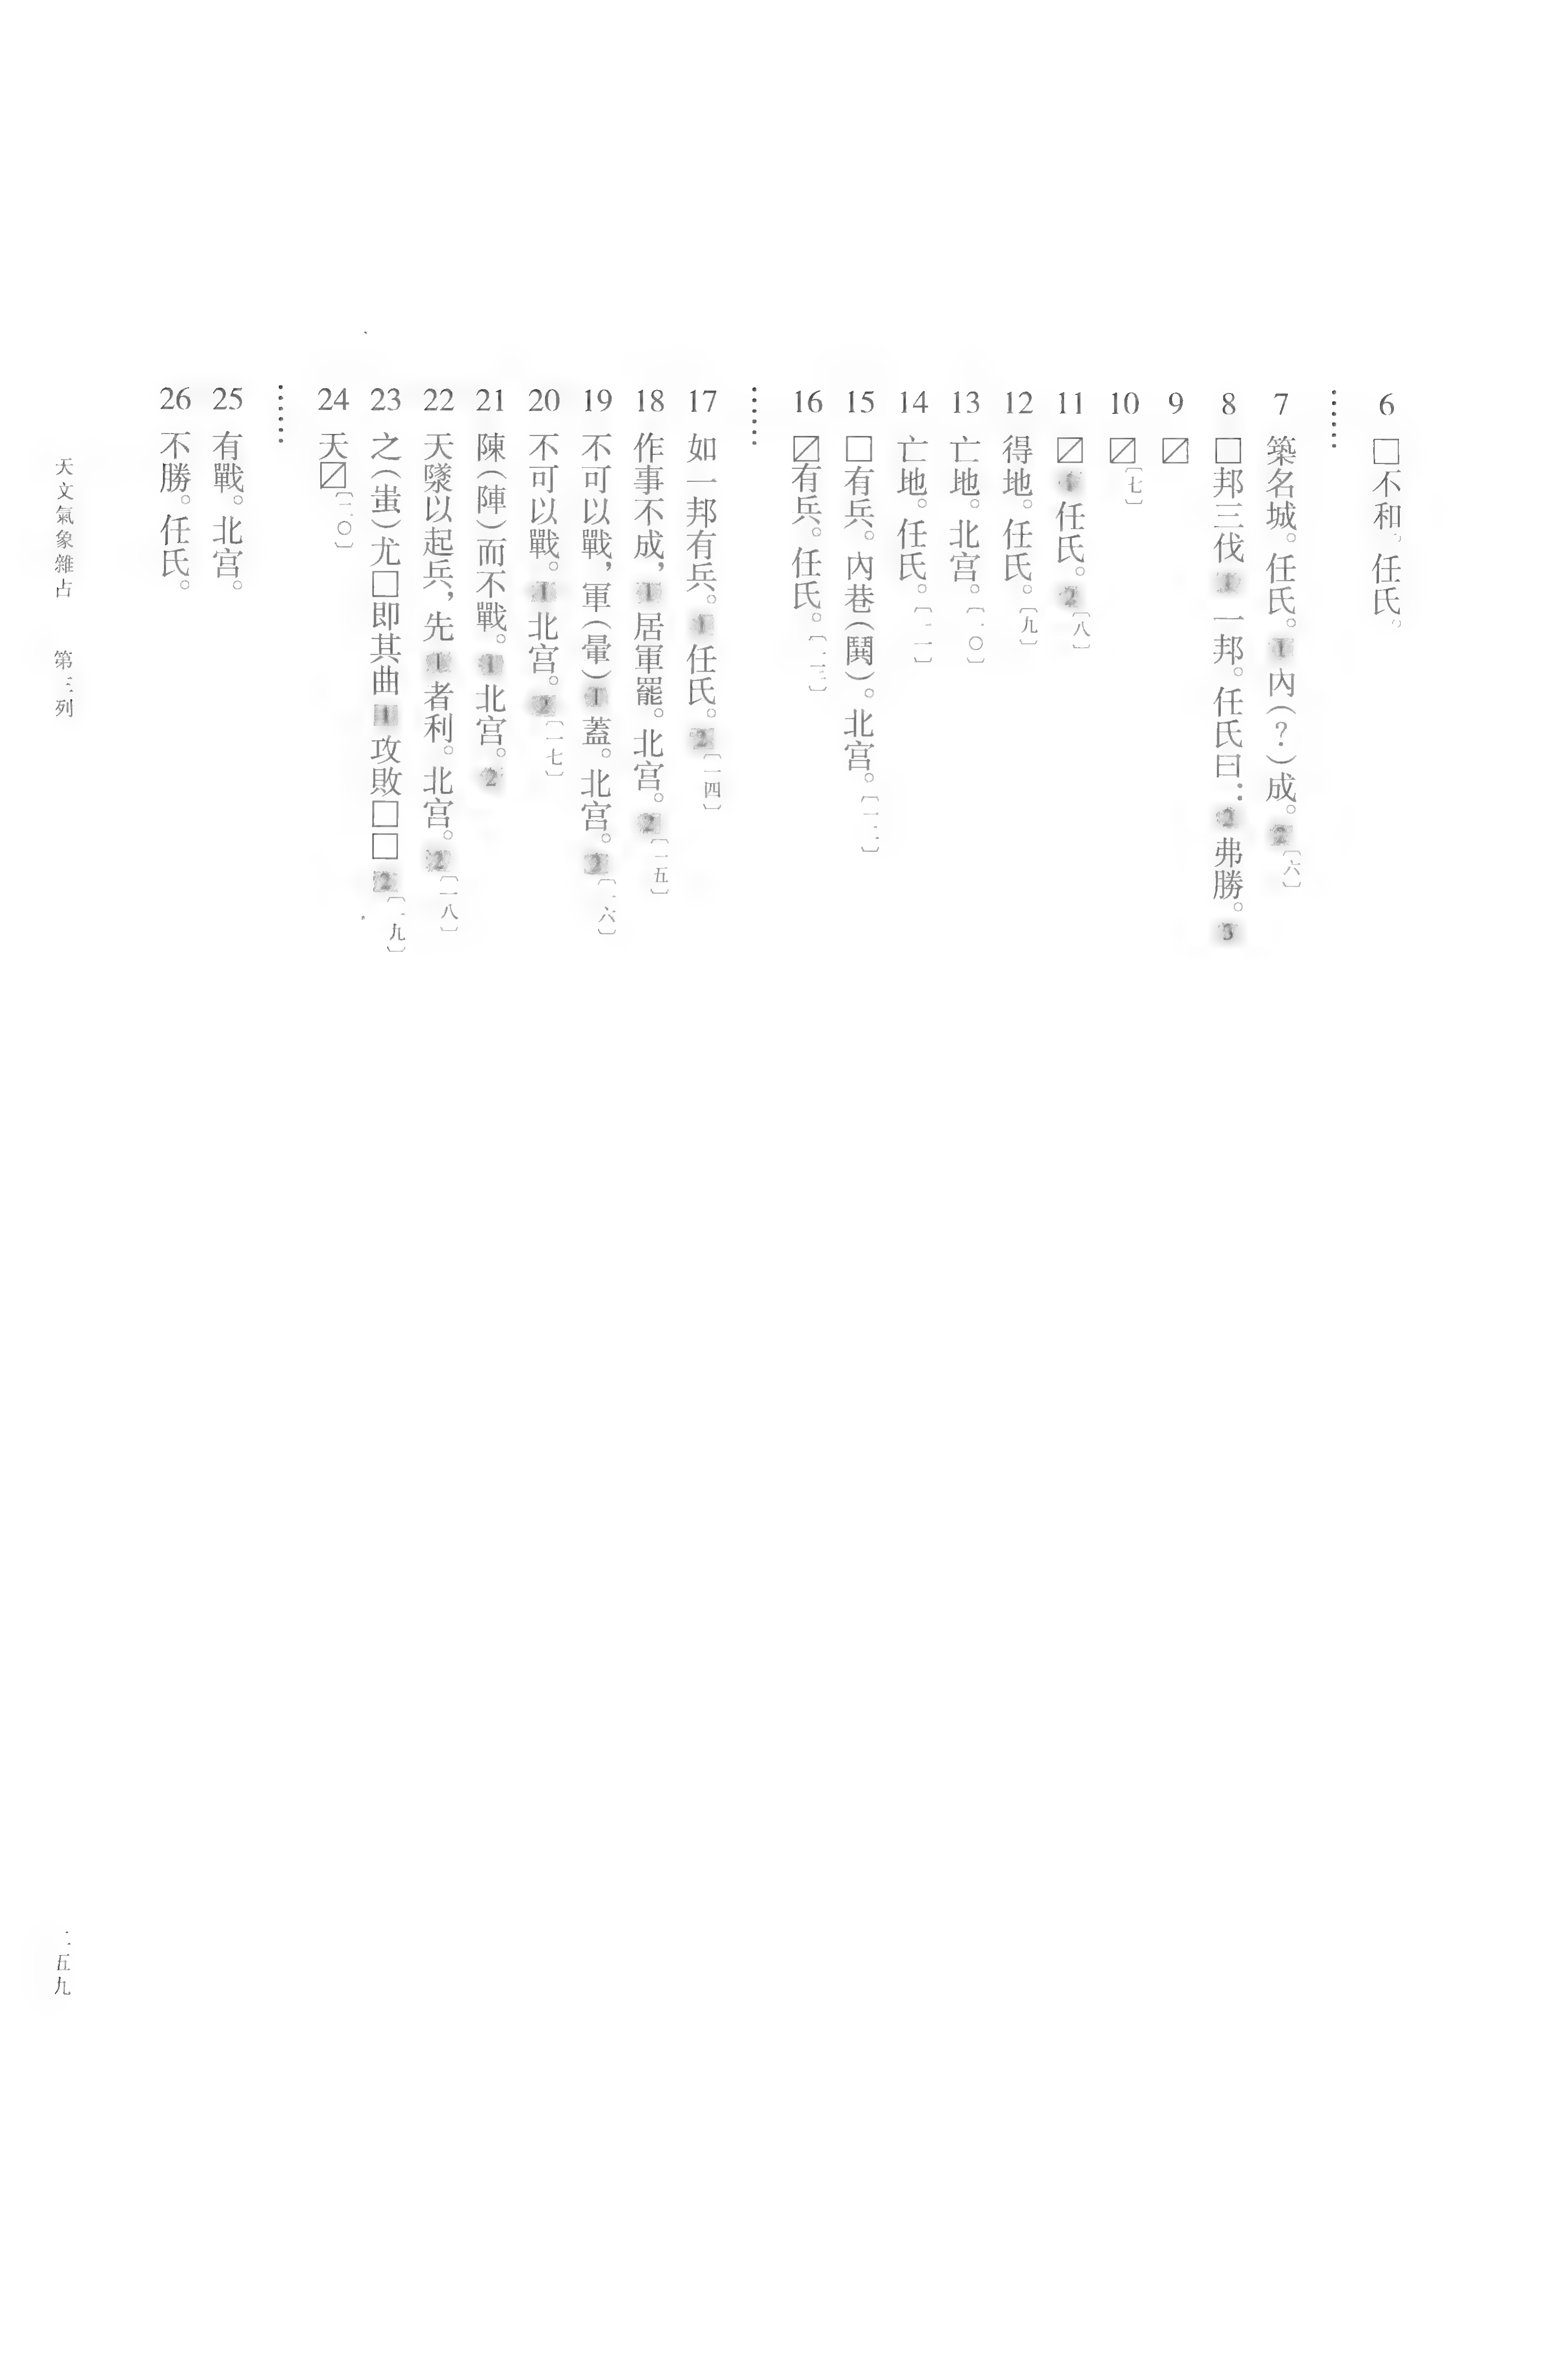 6 □不和。任氏。
……
7 築名城。任氏。1內(?)成。2〔六〕
8 □邦三伐1一邦。任氏曰:2弗勝。3
9 〼
10 〼〔七〕
11 〼1任氏。2〔八〕
12 得地。任氏。〔九〕
13 亡地。北宫。〔一〇〕
14 亡地。任氏。〔一一〕
15 □有兵。內巷(鬨)。北宫。〔一二〕
16 〼有兵。任氏。〔一三〕
……
17 如一邦有兵。1任氏。2〔一四〕
18 作事不成,1居軍罷。北宫。2〔一五〕
19 不可以戰,軍(暈)1蓋。北宫。2〔一六〕
20 不可以戰。1北宫。2〔一七〕
21 陳(陣)而不戰。1北宫。2
22 天墜以起兵,先1者利。北宫。2〔一八〕
23 之(蚩)尤□即其曲1攻敗□□2〔一九〕
24 天〼〔二〇〕
……
25 有戰。北宫。
26 不勝。任氏。
天文氣象雜占 第三列
一五九